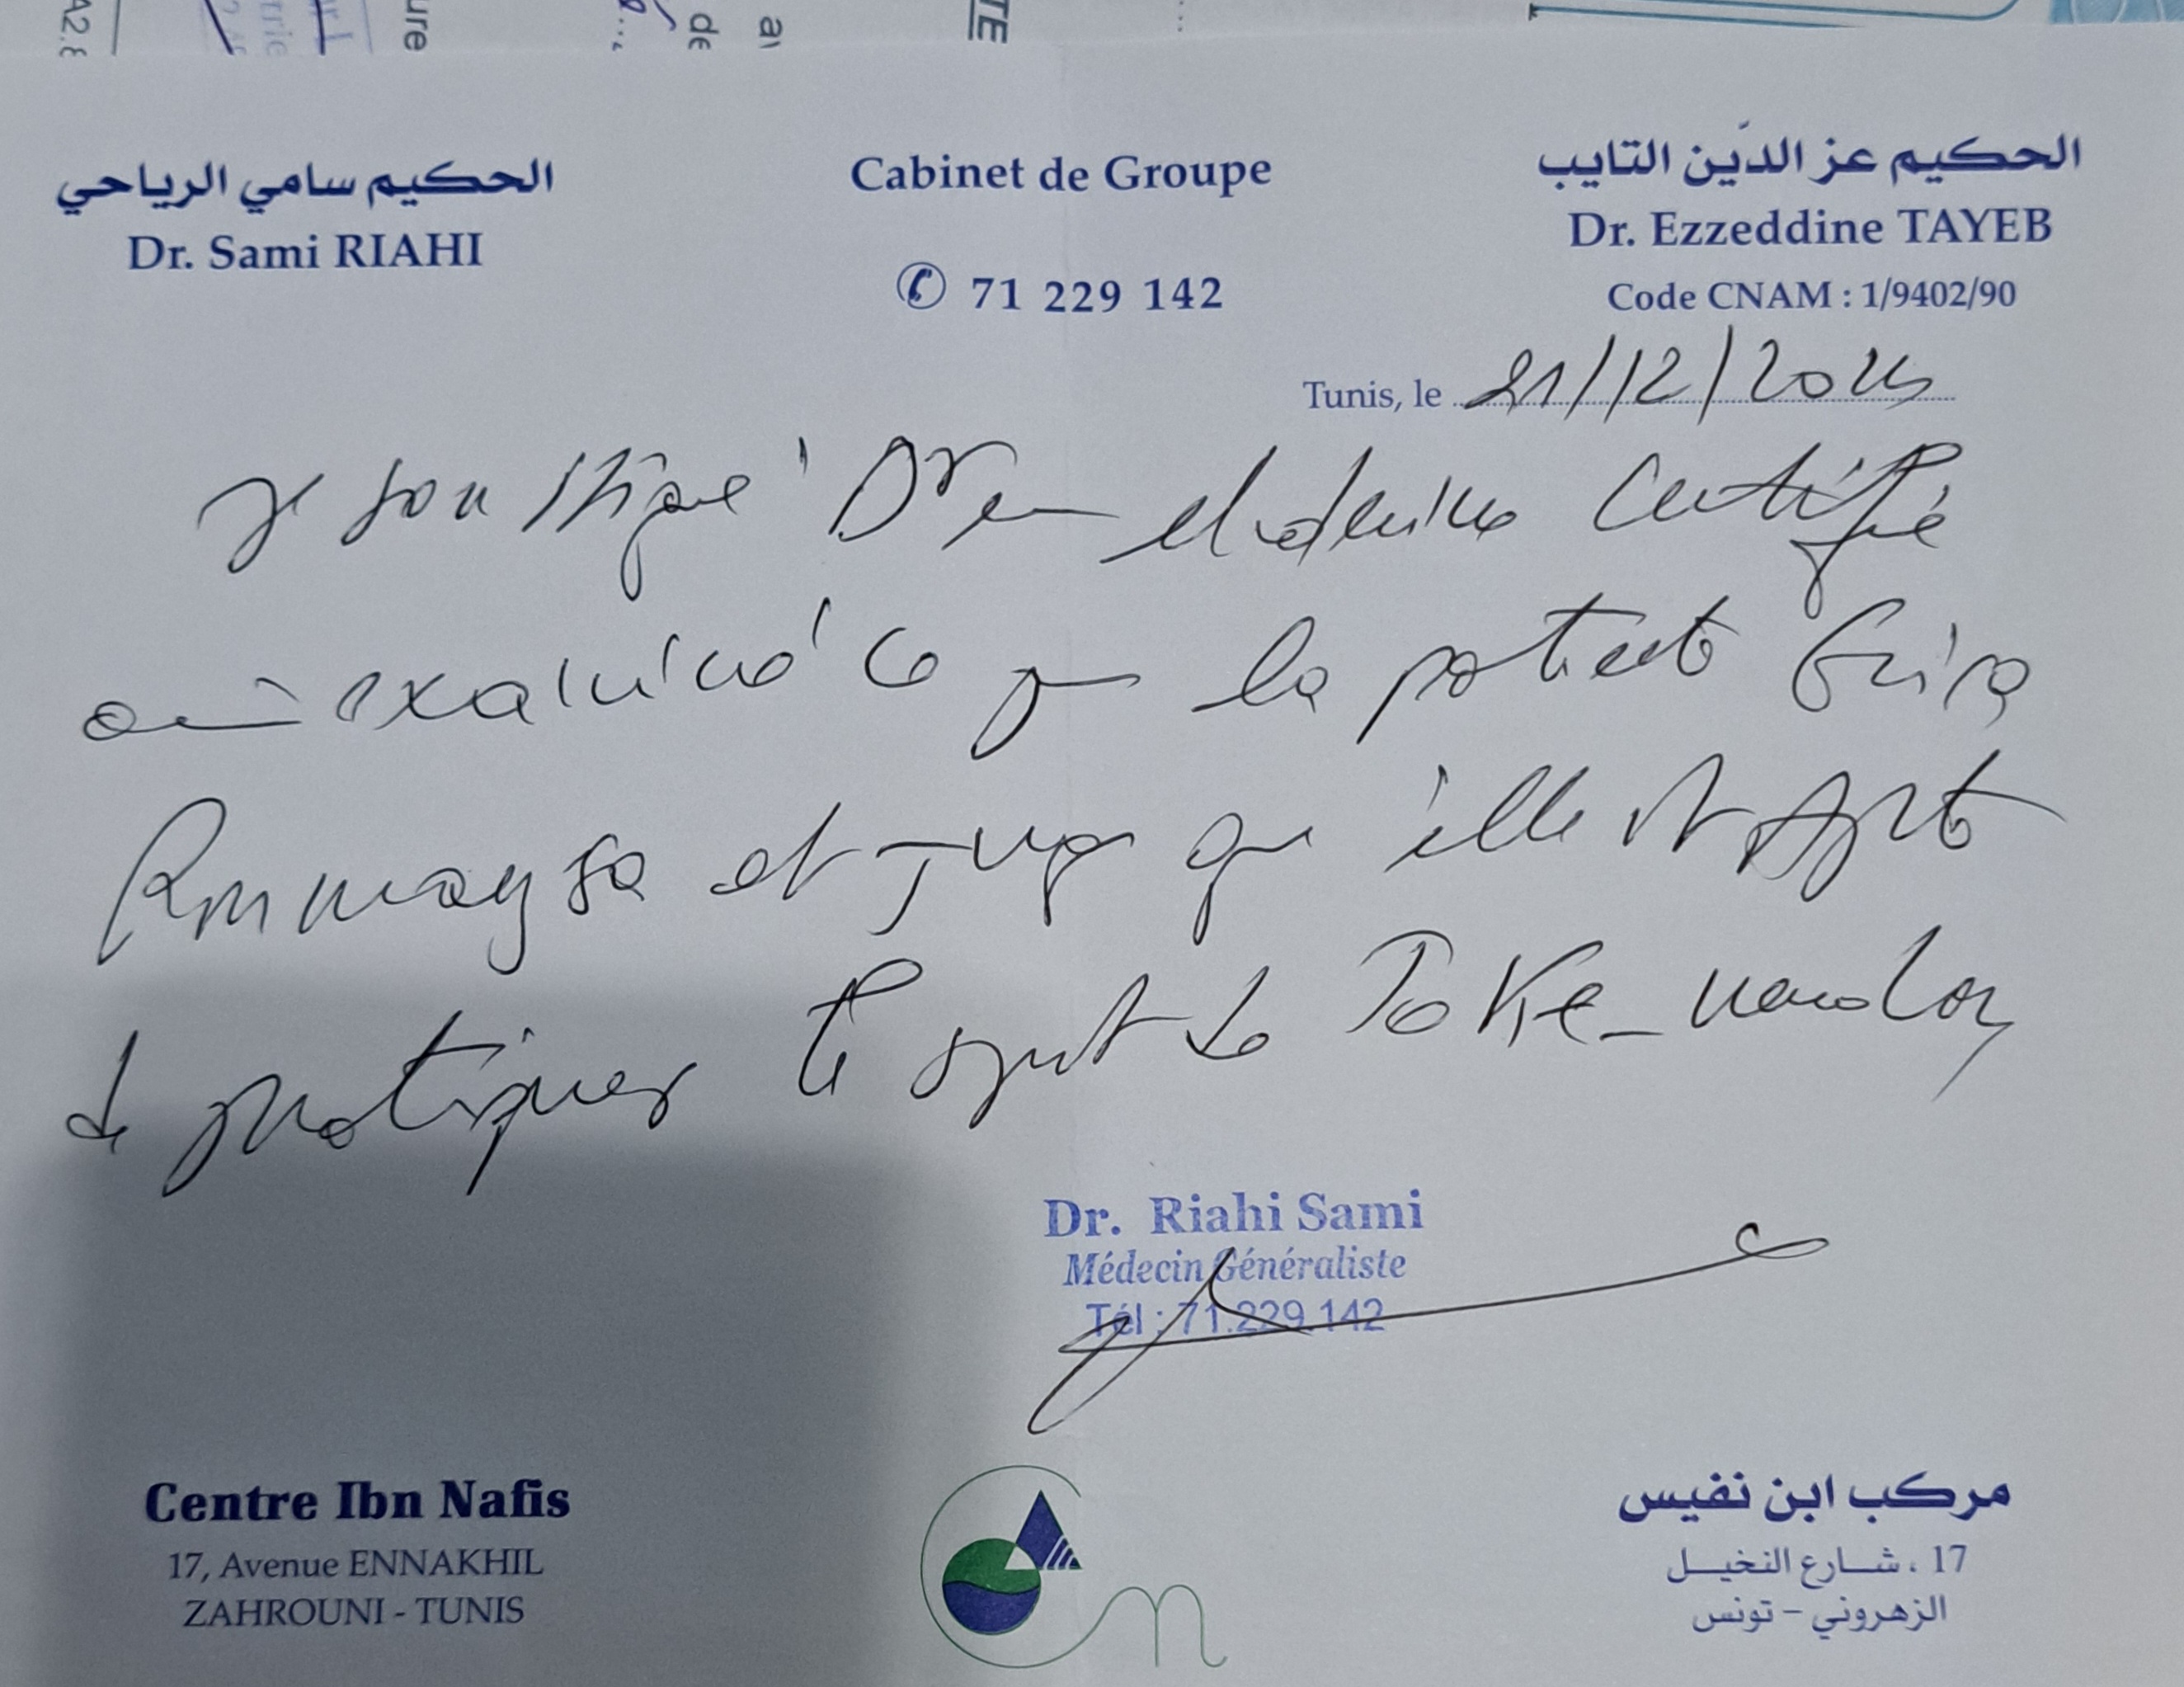 الحكيم سامي الرياحي
Dr. Sami RIAHI
Cabinet de Groupe
71 229 142
الحكيم عز الدّين التايب
Dr. Ezzeddine TAYEB
Code CNAM : 1/9402/90
Tunis, le 21/12/2024
Je soussigné Dr en Médecine certifie
avoir examiné ce jour la patiente
et juge qu'elle est Apte
de pratiquer le sport de
Dr. Riahi Sami
Médecin Généraliste
Tél : 71.229.142
Centre Ibn Nafis
17, Avenue ENNAKHIL
ZAHROUNI - TUNIS
مركب ابن نفيس
17 ، شارع النخيل
الزهروني - تونس
TE
ure
de